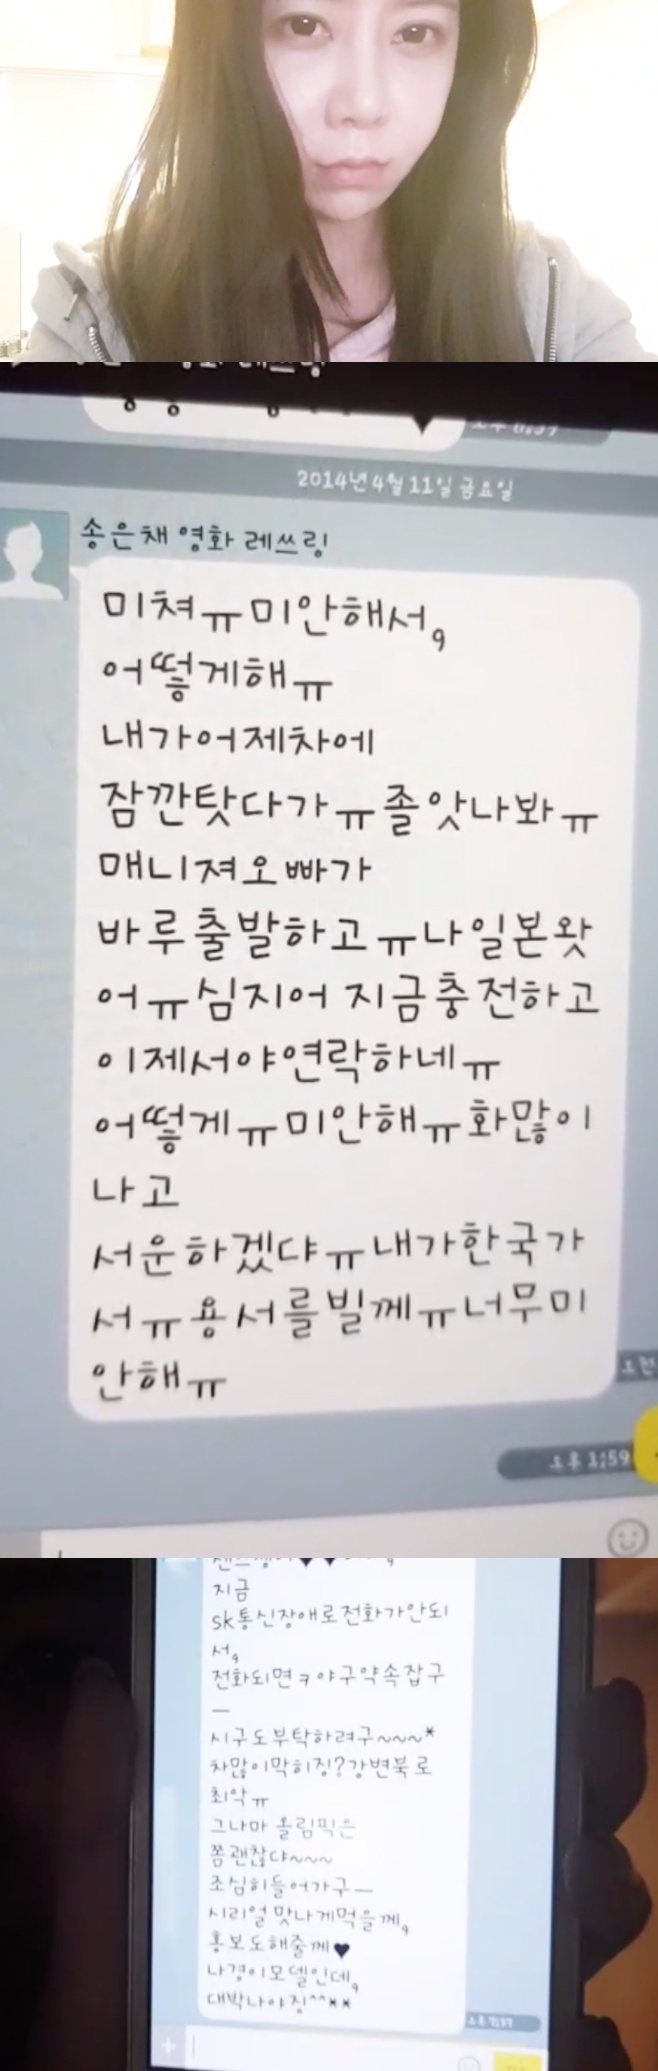 2014년 4월 11일 금요일
송은채 영화 레쓰링
미쳐ㅠ미안해서,
어떻게해ㅠ
내가어제차에
잠깐탓다가ㅠ졸앗나봐ㅠ
매니져오빠가
바루출발하고ㅠ나일본왓
어ㅠ심지어 지금충전하고
이제서야연락하네ㅠ
어떻게ㅠ미안해ㅠ화많이
나고
서운하겠댜ㅠ내가한국가
서ㅠ용서를빌께ㅠ너무미
안해ㅠ
오후 1:59
지금
sk통신장애로전화가안되
서,
전화되면ㅋ야구약속잡구
ㅡ
시구도부탁하려구~~~*
차많이막히징?강변북로
최악ㅠ
그나마 올림픽은
쫌괜찮댜~~~
조심히들어가구ㅡ
시리얼맛나게먹을께,
홍보도해줄께♥
나경이모델인데,
대박나야징^^**